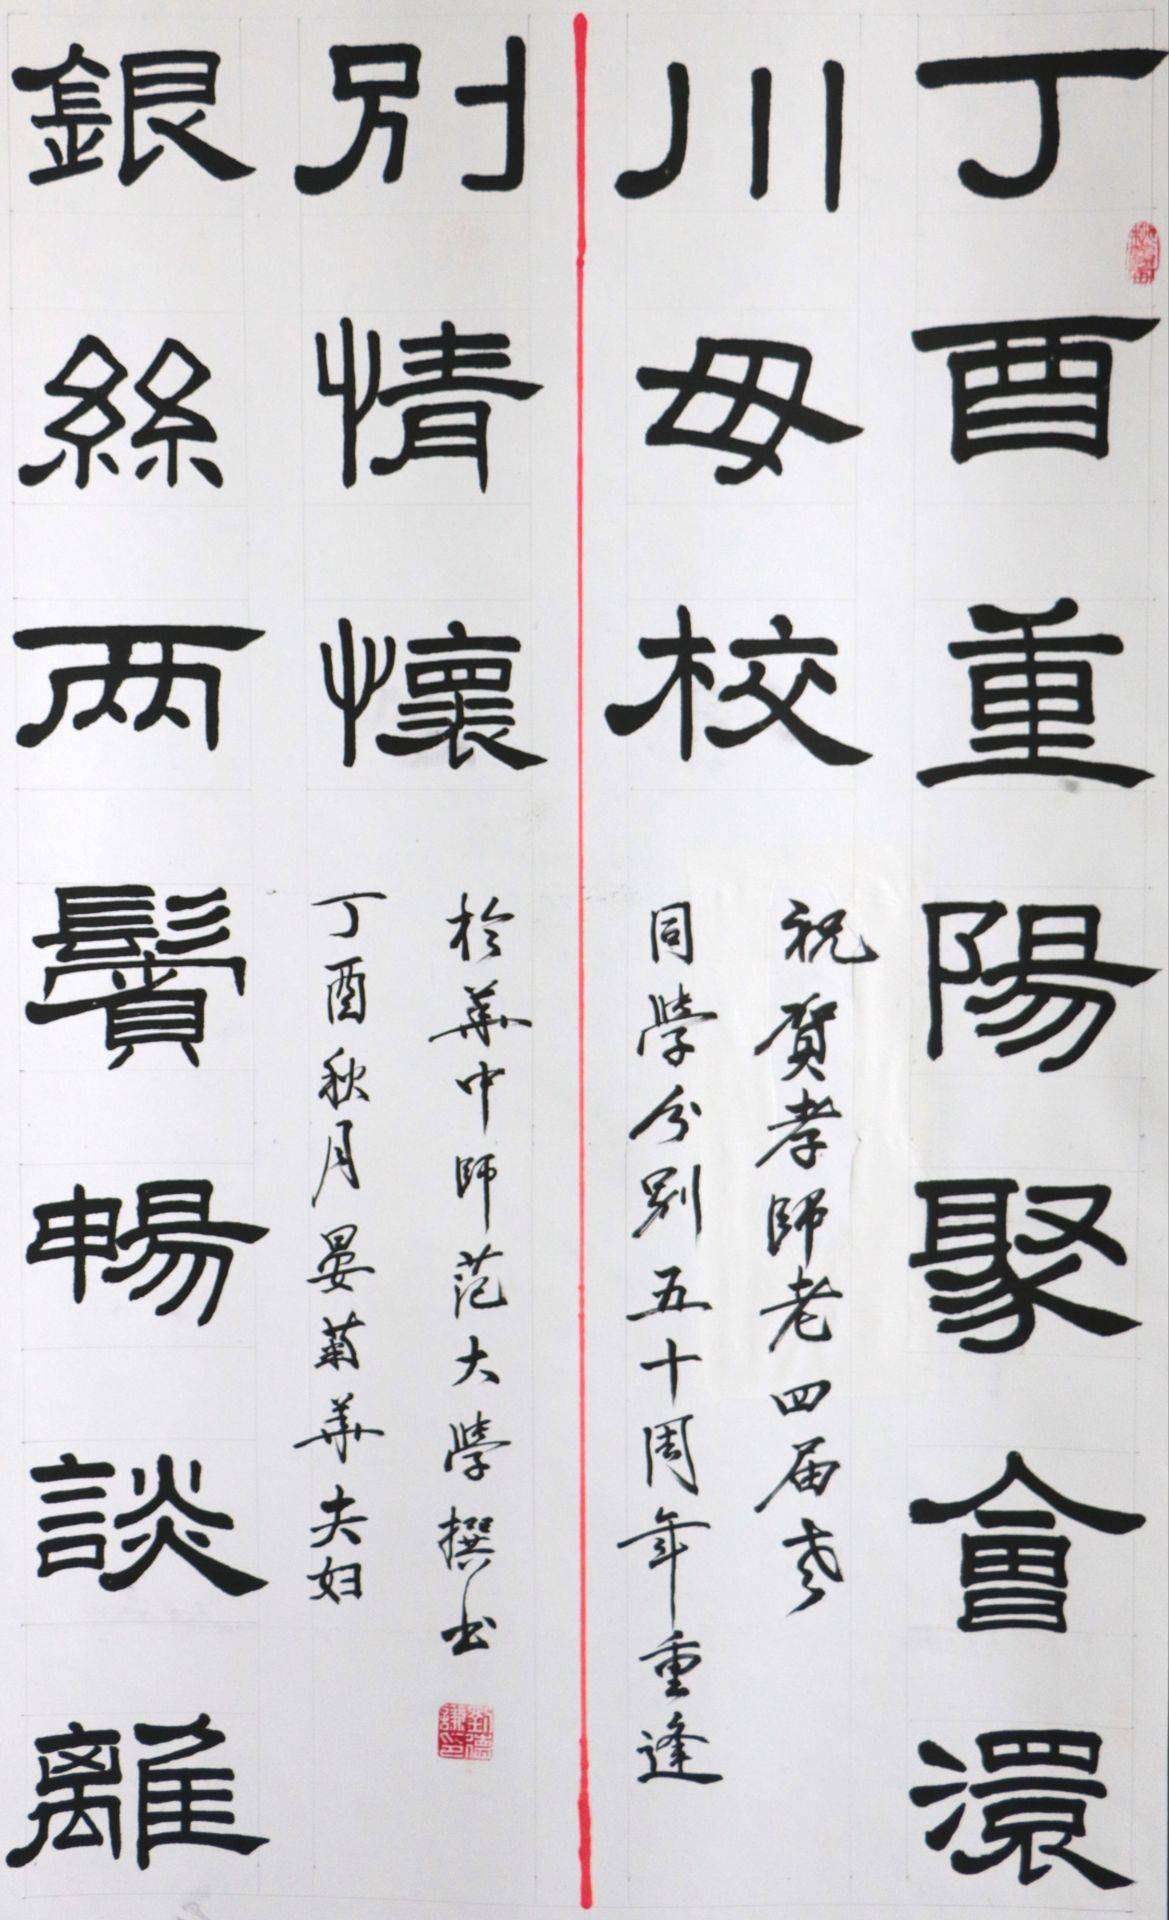 丁酉重陽聚會澴
川母校
祝賀孝師老四届老
同學分别五十周年重逢
銀絲两鬢暢談離
别情懷
丁酉秋月晏菊華夫妇
於華中師范大學撰书
劉德謙印